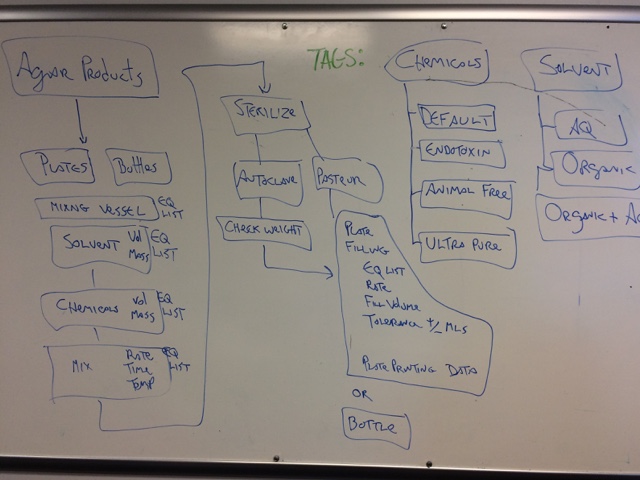 Agar Products
Plates
Bottles
Mixing Vessel EQ LIST
Solvent Vol Mass EQ LIST
Chemicals Vol Mass EQ LIST
Mix Rate Time Temp EQ LIST
Sterilize
Autoclave
Pasteur
Check Weight
Plate
Filling
EQ List
Rate
Fill Volume
Tolerance +/- MLS
Plate Printing Data
OR
Bottle
TAGS:
Chemicals
DEFAULT
ENDOTOXIN
ANIMAL FREE
ULTRA PURE
Solvent
AQ
Organic
Organic + AQ